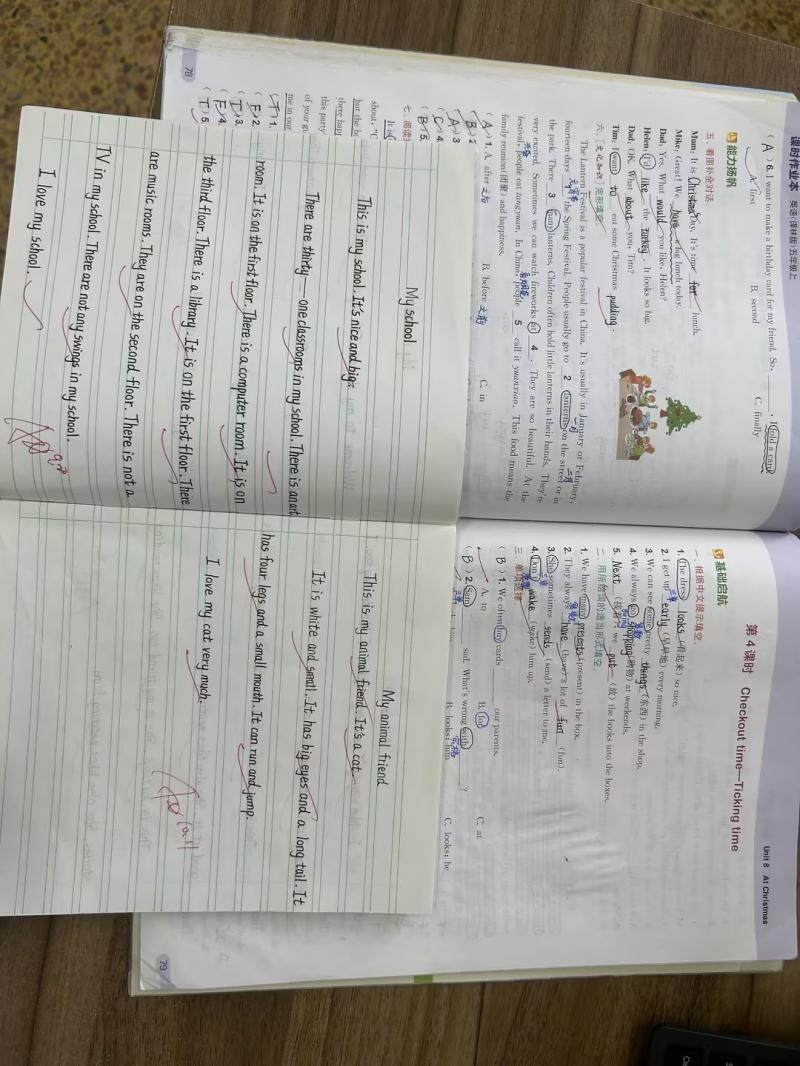 课时作业本 英语(译林版)五年级上
( A ) 6. I want to make a birthday card for my friend. So, ____, I fold a card.
A. first B. second C. finally
能力扬帆
五、看图补全对话。
Mum: It is Christmas Day. It's time for lunch.
Mike: Great! We have a big lunch today.
Dad: Yes. What would you like, Helen?
Helen: I'd like the turkey. It looks so big.
Dad: OK. What about you, Tim?
Tim: I want to eat some Christmas pudding.
六、[文化知识]完形填空。
The Lantern Festival is a popular festival in China. It's usually in January or February,
一月 二月
fourteen days 1 the Spring Festival. People usually go to 2 lanterns on the street or in
the park. There 3 many lanterns. Children often hold little lanterns in their hands. They're
very excited. Sometimes we can watch fireworks at 4 . They are so beautiful. At the
festival, people eat tangyuan. In China, people 5 call it yuanxiao. This food means the
family reunion(团聚) and happiness.
( A ) 1. A. after 之后 B. before 之前 C. in
( B ) 2
( A ) 3
( C ) 4
( B ) 5.
七、阅读
It is
shout, "C
but the b
there happ
this party
of your g
me in our
( T ) 1.
( F ) 2.
( T ) 3.
( F ) 4.
( T ) 5
78
My school
This is my school. It's nice and big.
There are thirty—one classrooms in my school. There is an art
room. It is on the first floor. There is a computer room. It is on
the third floor. There is a library. It is on the first floor. There
are music rooms. They are on the second floor. There is not a
TV in my school. There are not any swings in my school.
I love my school.
Unit 8 At Christmas
第4课时 Checkout time—Ticking time
基础启航
一、根据中文提示填空。
1. The dress looks (看起来) so nice.
2. I get up early (早早地) every morning.
3. We can see some pretty things (东西) in the shop.
4. We always go shopping (购物) at weekends.
5. Next (接着), we put (放) the books into the boxes.
二、用所给词的适当形式填空。
1. We have many presents (present) in the box.
2. They always have (have) a lot of fun (fun).
3. She sometimes sends (send) a letter to me.
4. Don't wake (wake) him up.
三、单项选择。
( B ) 1. We often buy cards ____ our parents.
A. to B. for C. at
( B ) 2. Sam ____ sad. What's wrong with ____?
B. looks; him C. looks; he
79
My animal friend
This is my animal friend. It's a cat.
It is white and small. It has big eyes and a long tail. It
has four legs and a small mouth. It can run and jump.
I love my cat very much.